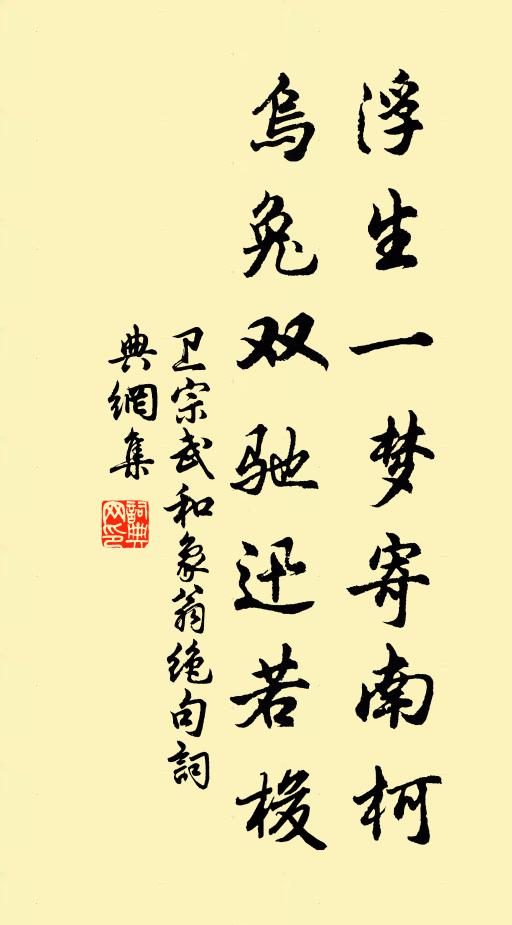 浮生一梦寄南柯
乌兔双驰迅若梭
卫宗武和象翁绝句詞
典網集
詞典
网印